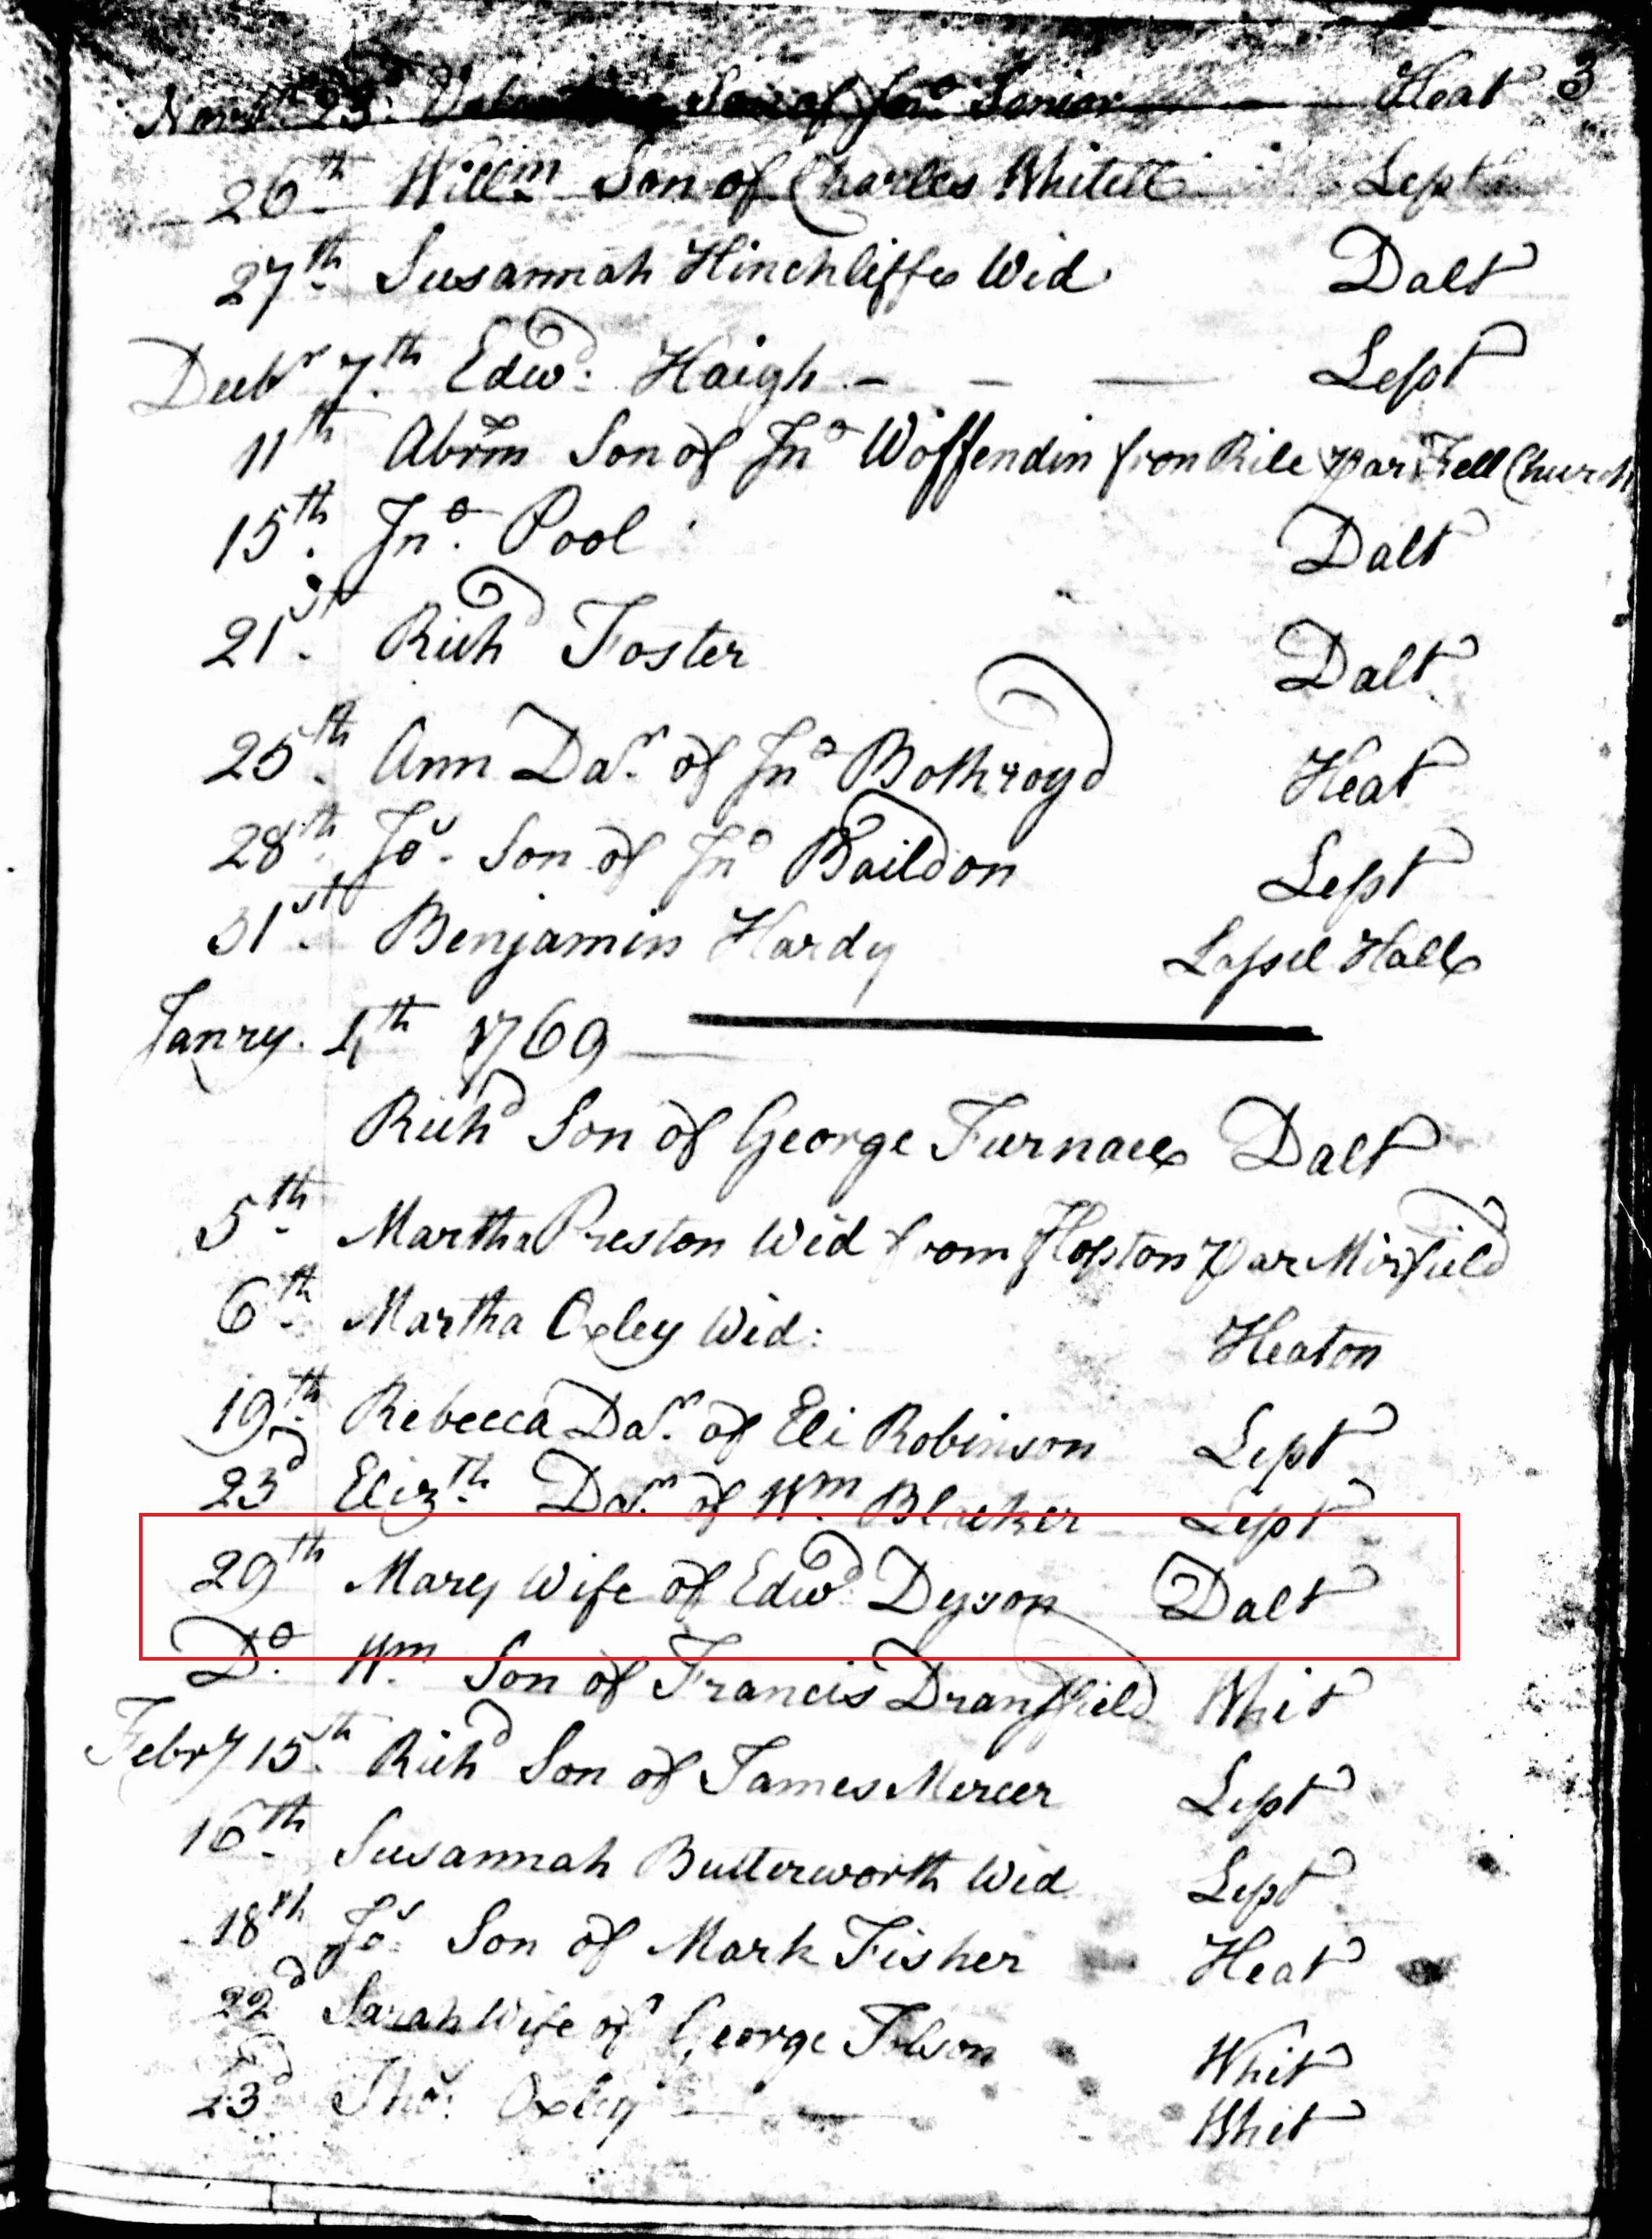 Novr 23d Son of Jno Senior Heat 3
26th Willm Son of Charles Lept
27th Susannah Hinchliffe Wid Dalt
Decbr 7th Edwd Haigh - - — Lept
11th Abrm Son of Jno Woffendin from Par Church
15th Jno Pool Dalt
21st Richd Foster Dalt
25th Ann Dar of Jno Bothroyd Heat
28th Jos Son of Jno Baildon Lept
31st Benjamin Hardy Lassel Hall
Janry. 1th 1769
Richd Son of George Furnace Dalt
5th Martha Preston Wid from Hopton Par Mirfield
6th Martha Oxley Wid: Heaton
19th Rebecca Dar of Eli Robinson Lept
23d Elizth Dar of Wm Blacker Lept
29th Mary Wife of Edwd Dyson Dalt
Do Wm Son of Francis Dransfield Whit
Febry 15th Richd Son of James Mercer Lept
16th Susannah Butterworth Wid Lept
18th Jos Son of Mark Fisher Heat
22d Sarah Wife of George Whit
23d Thos Oxley Whit